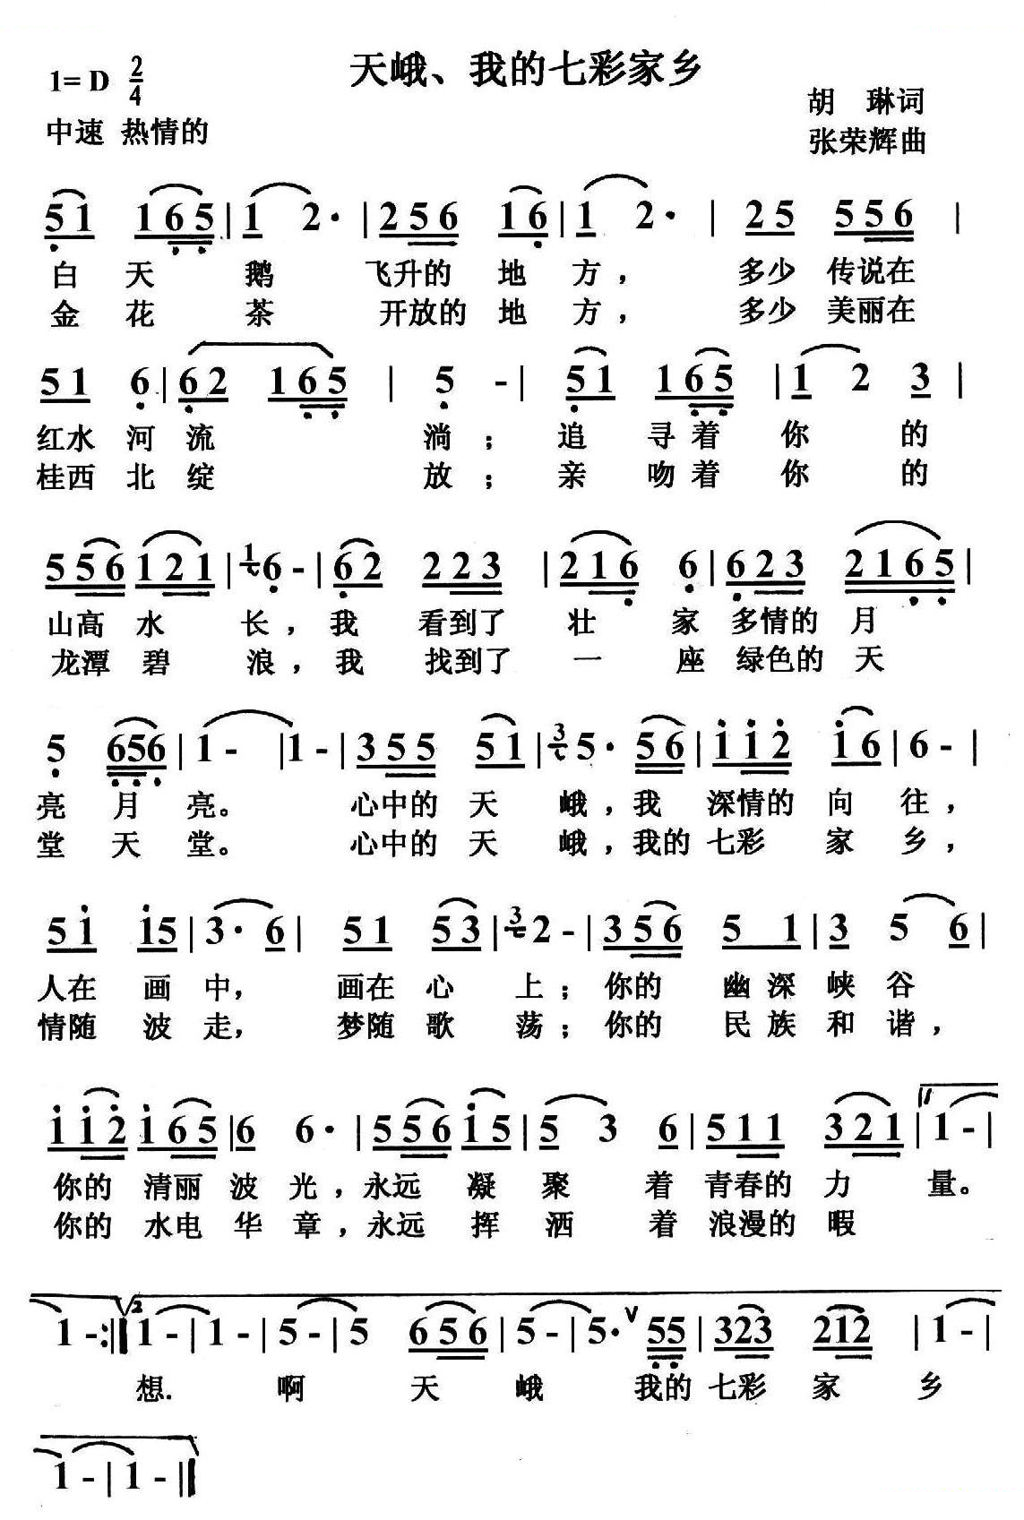 天峨、我的七彩家乡
1= D 2/4
胡 琳词
中速 热情的
张荣辉曲
51 165 | 1 2· | 256 16 | 1 2· | 25 556 |
白 天 鹅 飞升的 地 方， 多少 传说在
金 花 茶 开放的 地 方， 多少 美丽在
51 6 | 62 165 | 5 - | 51 165 | 1 2 3 |
红水 河 流 淌； 追 寻着 你 的
桂西 北 绽 放； 亲 吻着 你 的
556 121 | 1 6 - | 62 223 | 216 6 | 623 2165 |
山高 水 长， 我 看到了 壮 家 多情的 月
龙潭 碧 浪， 我 找到了 一 座 绿色的 天
5 656 | 1 - | 1 - | 355 51 | 3 5· 56 | 112 16 | 6 - |
亮 月 亮。 心中的 天 峨， 我 深情的 向 往，
堂 天 堂。 心中的 天 峨， 我的 七彩 家 乡，
51 15 | 3· 6 | 51 53 | 3 2 - | 356 5 1 | 3 5 6 |
人在 画 中， 画在 心 上； 你的 幽 深 峡 谷
情随 波 走， 梦随 歌 荡； 你的 民 族 和 谐，
112 165 | 6 6· | 556 15 | 5 3 6 | 511 321 | 1 1 - |
你的 清丽 波 光， 永远 凝 聚 着 青春的 力 量。
你的 水电 华 章， 永远 挥 洒 着 浪漫的 暇
1 - :‖ 2 1 - | 1 - | 5 - | 5 656 | 5 - | 5· V 55 | 323 212 | 1 - |
想. 啊 天 峨 我的 七彩 家 乡
1 - | 1 - ‖